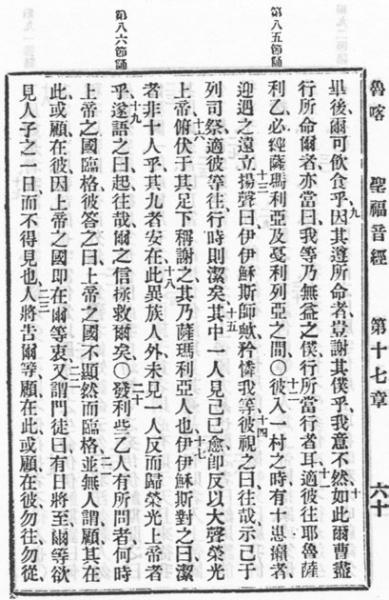 第八五節誦
第八六節誦
魯喀 聖福音經 第十七章 六十
畢後爾可飲食乎九因其遵所命者豈謝其僕乎我意不然十如此爾曹盡
行所命爾者亦當曰我等乃無益之僕行所當行者耳十一適彼往耶魯薩
利乙必經薩瑪利亞及戞利列亞之間○十二彼入一村之時有十患癩者
迎遇之遠立十三揚聲曰伊伊穌斯師歟矜憐我等十四彼視之曰往哉示己于
列司祭適彼等往行時則潔矣十五其中一人見己已愈卽反以大聲榮光
上帝十六俯伏于其足下稱謝之其乃薩瑪利亞人也十七伊伊穌斯對之曰潔
者非十人乎其九者安在十八此異族人外未見一人反而歸榮光上帝者
乎十九遂語之曰起往哉爾之信拯救爾矣○二十發利些乙人有所問者何時
上帝之國臨格彼答之曰上帝之國不顯然而臨格二一並無人謂顧其在
此或顧在彼因上帝之國卽在爾等衷二二又謂門徒曰有日將至爾等欲
見人子之一日而不得見也二三人將告爾等顧在此或顧在彼勿往勿從